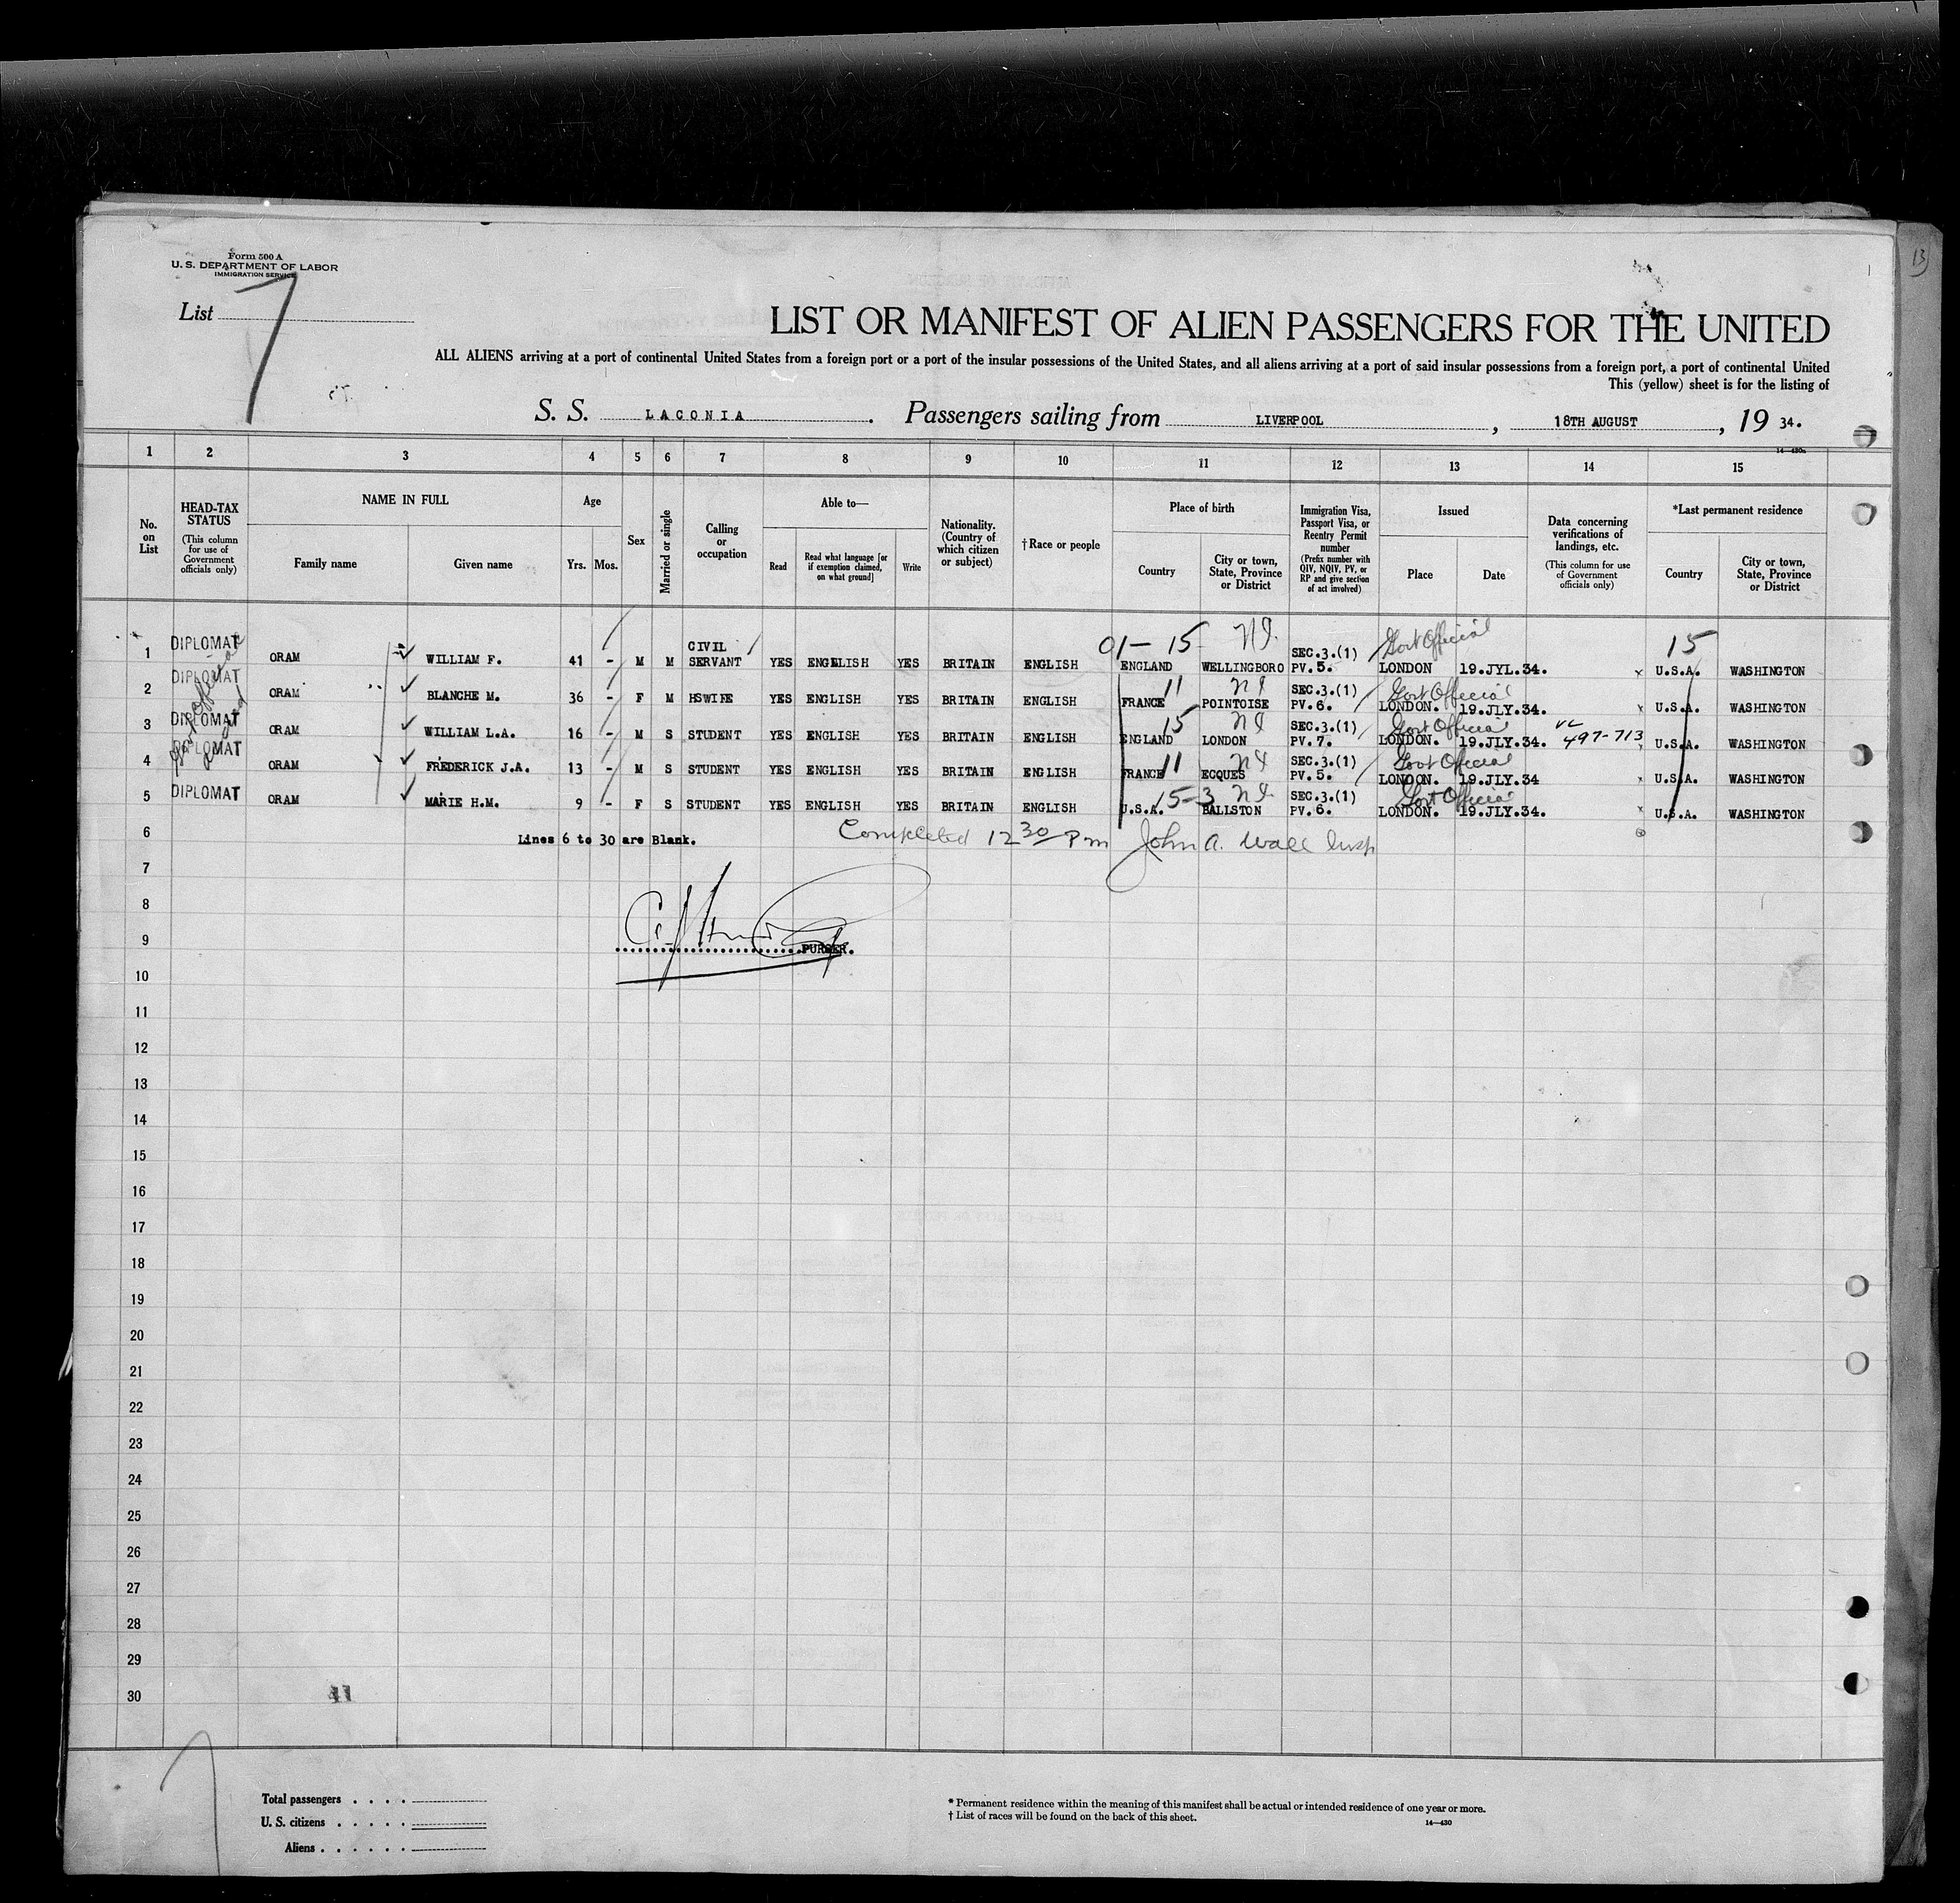 13
Form 500 A
U. S. DEPARTMENT OF LABOR
IMMIGRATION SERVICE
List 7
LIST OR MANIFEST OF ALIEN PASSENGERS FOR THE UNITED
ALL ALIENS arriving at a port of continental United States from a foreign port or a port of the insular possessions of the United States, and all aliens arriving at a port of said insular possessions from a foreign port, a port of continental United
This (yellow) sheet is for the listing of
S. S. LACONIA. Passengers sailing from LIVERPOOL, 18TH AUGUST, 19 34.
14—430a
1 2 3 4 5 6 7 8 9 10 11 12 13 14 15
No. on List
HEAD-TAX STATUS
(This column for use of Government officials only)
NAME IN FULL
Family name
Given name
Age
Yrs.
Mos.
Sex
Married or single
Calling or occupation
Able to—
Read
Read what language [or if exemption claimed, on what ground]
Write
Nationality. (Country of which citizen or subject)
†Race or people
Place of birth
Country
City or town, State, Province or District
Immigration Visa, Passport Visa, or Reentry Permit number
(Prefix number with QIV, NQIV, PV, or RP and give section of act involved)
Issued
Place
Date
Data concerning verifications of landings, etc.
(This column for use of Government officials only)
*Last permanent residence
Country
City or town, State, Province or District
01-15 NI Govt Official 15
1 DIPLOMAT ORAM WILLIAM F. 41 - M M CIVIL SERVANT YES ENGLISH YES BRITAIN ENGLISH ENGLAND WELLINGBORO SEC.3.(1) PV.5. LONDON 19.JYL.34. x U.S.A. WASHINGTON
11 NI Govt Official
2 DIPLOMAT ORAM BLANCHE M. 36 - F M HSWIFE YES ENGLISH YES BRITAIN ENGLISH FRANCE POINTOISE SEC.3.(1) PV.6. LONDON. 19.JLY.34. x U.S.A. WASHINGTON
15 NI Govt Official
3 DIPLOMAT ORAM WILLIAM L.A. 16 - M S STUDENT YES ENGLISH YES BRITAIN ENGLISH ENGLAND LONDON SEC.3.(1) PV.7. LONDON. 19.JLY.34. 497-713 U.S.A. WASHINGTON
11 NI Govt Official
4 DIPLOMAT ORAM FREDERICK J.A. 13 - M S STUDENT YES ENGLISH YES BRITAIN ENGLISH FRANCE ECQUES SEC.3.(1) PV.5. LONDON. 19.JLY.34 x U.S.A. WASHINGTON
15-3 NI Govt Official
5 DIPLOMAT ORAM MARIE H.M. 9 - F S STUDENT YES ENGLISH YES BRITAIN ENGLISH U.S.A. BALLSTON SEC.3.(1) PV.6. LONDON. 19.JLY.34. x U.S.A. WASHINGTON
6 Lines 6 to 30 are Blank. Completed 12 30 Pm John A. Wall Insp
7
8
9 PURSER.
10
11
12
13
14
15
16
17
18
19
20
21
22
23
24
25
26
27
28
29
30
Total passengers . . . .
U. S. citizens . . . . .
Aliens . . . . . .
* Permanent residence within the meaning of this manifest shall be actual or intended residence of one year or more.
† List of races will be found on the back of this sheet.
14—430